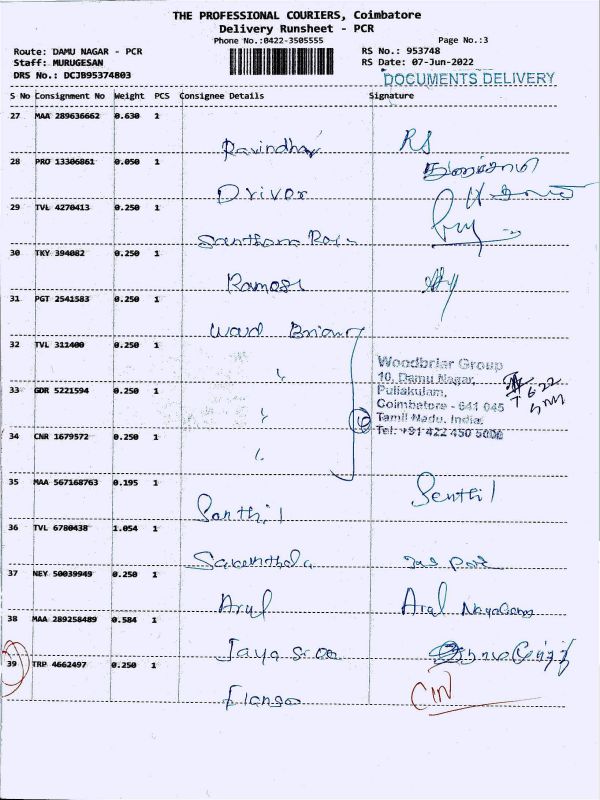 THE PROFESSIONAL COURIERS, Coimbatore
Delivery Runsheet - PCR
Phone No.:0422-3505555
Page No.:3
Route: DAMU NAGAR - PCR
RS No.: 953748
Staff: MURUGESAN
RS Date: 07-Jun-2022
DRS No.: DCJB95374803
DOCUMENTS DELIVERY
S No Consignment No Weight PCS Consignee Details Signature
27 MAA 289636662 0.630 1
Ravindhar RS
28 PRO 13306861 0.050 1
Driver
29 TVL 4270413 0.250 1
Santhana
30 TKY 394082 0.250 1
Ramesh
31 PGT 2541583 0.250 1
Wood
32 TVL 311400 0.250 1
Woodbriar Group
10, Damu Nagar,
33 GDR 5221594 0.250 1
Puliakulam,
Coimbatore - 641 045
Tamil Nadu, India.
34 CNR 1679572 0.250 1
Tel: +91 422 450 5000
6
35 MAA 567168763 0.195 1
Senthil Senthil
36 TVL 6780438 1.054 1
37 NEY 50039949 0.250 1
Arul Arul
38 MAA 289258489 0.584 1
Jaya
39 TRP 4662497 0.250 1
Elango